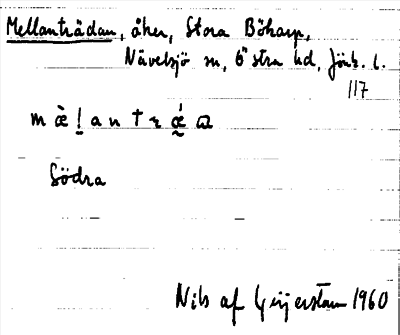 Mellanträdan, åker, Stora Böharp,
Nävelsjö sn, Östra hd, Jönk. l.
117
m æ̀ l̠ a n t ɽ ǽ̰ ꞷ
Södra
Nils af Geijerstam 1960